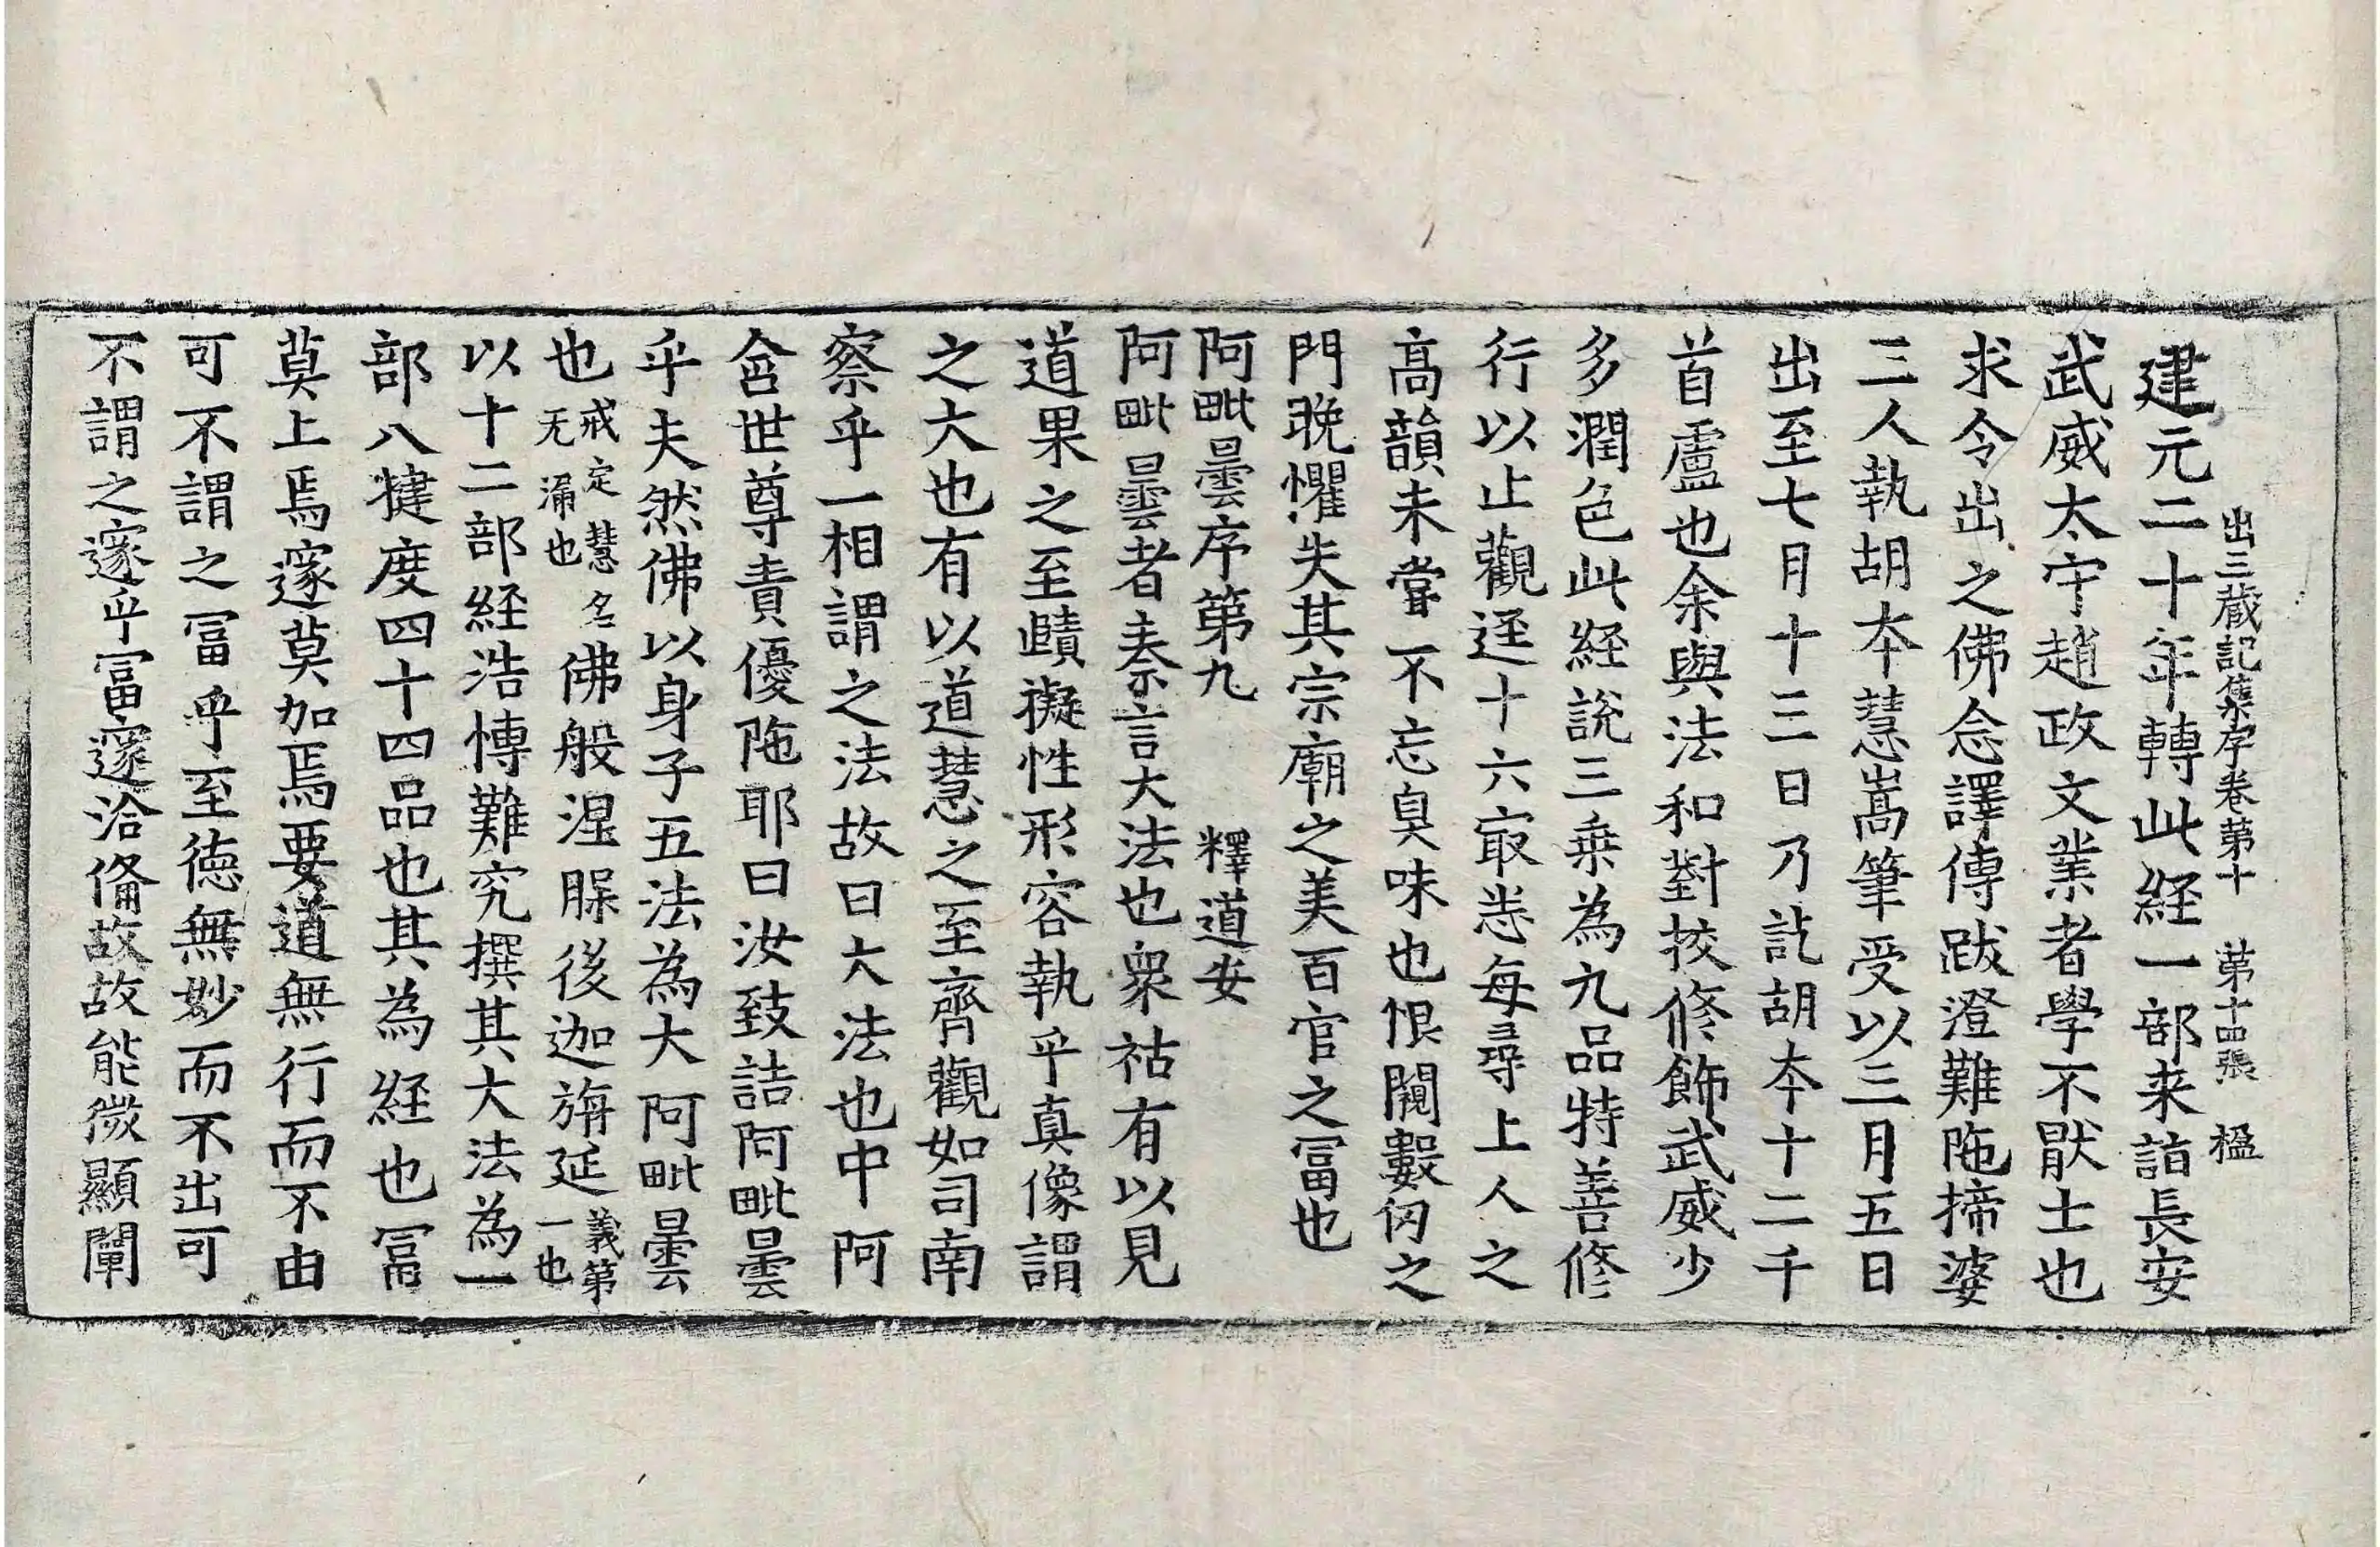 出三蔵記集序卷第十　第十四張　楹
建元二十年轉此経一部来詣長安
武威太守趙政文業者學不猒士也
求令出之佛念譯傳跋澄難陁揥婆
三人執胡夲慧嵩筆受以三月五日
出至七月十三日乃訖胡夲十二千
首盧也余與法和對挍修飾武威少
多潤色此経說三乗為九品特善修
行以止觀逕十六冣悉每尋上人之
高韻未甞不忘臭味也恨闚數仞之
門晚懼失其宗廟之美百官之冨也
阿毗曇序第九　釋道安
阿毗曇者秦言大法也衆祐有以見
道果之至賾擬性形容執乎真像謂
之大也有以道慧之至齊觀如司南
察乎一相謂之法故曰大法也中阿
含世尊責優陁耶曰汝致詰阿毗曇
乎夫然佛以身子五法為大阿毗曇
也戒定慧名无漏也佛般涅𦞂後迦旃延義第一也
以十二部経浩博難究撰其大法為一
部八揵度四十四品也其為経也冨
莫上焉邃莫加焉要道無行而不由
可不謂之冨乎至徳無妙而不出可
不謂之邃乎冨邃洽俻故故能微顯闡